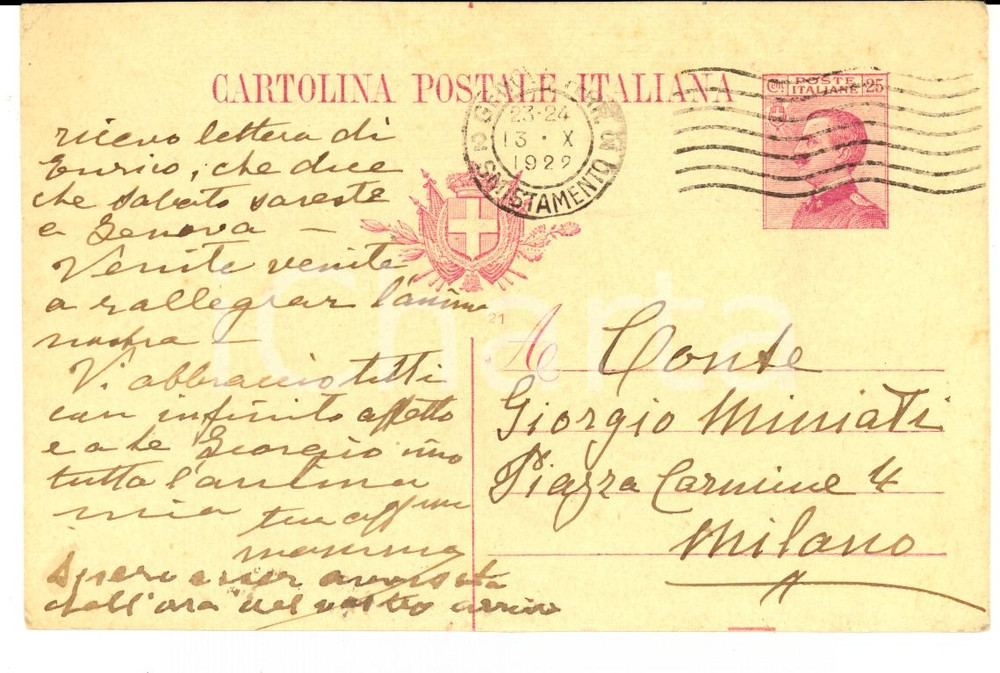 CARTOLINA POSTALE ITALIANA
Ct. POSTE ITALIANE 25
23-24
13 · X
1922
SMISTAMENTO
ricevo lettera di
Enrico, che dice
che sabato sareste
a Genova –
Venite venite
a rallegrar l'anima
nostra –
Vi abbraccio tutti
con infinito affetto
e a te Giorgio mio
tutta l'anima
mia tua affma
mamma
Spero esser avvisata
dell'ora del vostro arrivo
21
Al Conte
Giorgio Miniati
Piazza Carmine 4
Milano
iCharta